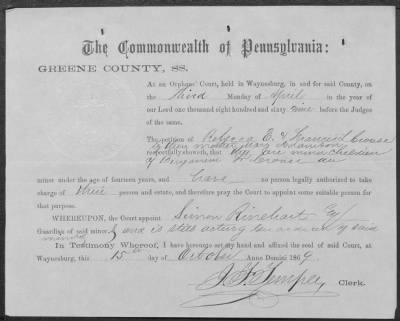 The Commonwealth of Pennsylvania:
GREENE COUNTY, SS.
At an Orphans' Court, held in Waynesburg, in and for said County, on
the third Monday of April in the year of
our Lord one thousand eight hundred and sixty nine before the Judges
of the same.
The petition of Rebecca E. & Francis Crouse
by their mother Mary
respectfully sheweth, that they are minor children
of Benjamin F Crouse
minor under the age of fourteen years, and have no person legally authorized to take
charge of their person and estate, and therefore pray the Court to appoint some suitable person for
that purpose.
WHEREUPON, the Court appoint Simon Rinehart Esq
Guardian of said minors and is still acting Guardian of said
minors
In Testimony Whereof, I have hereunto set my hand and affixed the seal of said Court, at
Waynesburg, this 15th day of October Anno Domini 1869.
J. F. Temple, Clerk.